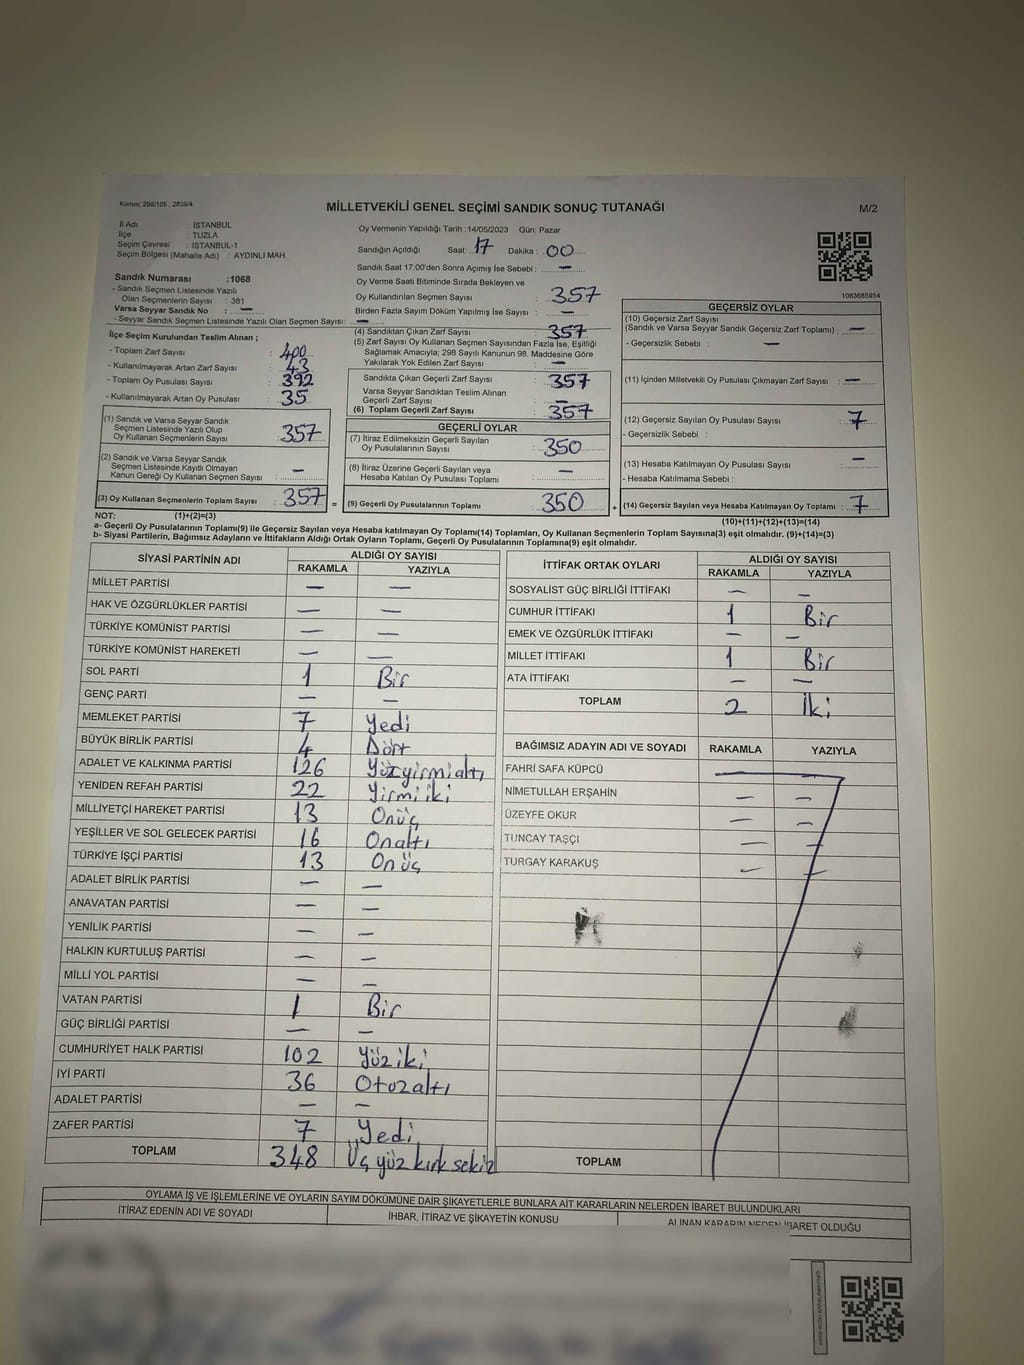 Kanun; 298/105 , 2839/4
MİLLETVEKİLİ GENEL SEÇİMİ SANDIK SONUÇ TUTANAĞI
M/2
İl Adı : İSTANBUL
İlçe : TUZLA
Seçim Çevresi : İSTANBUL-1
Seçim Bölgesi (Mahalle Adı) : AYDINLI MAH.
Sandık Numarası :1068
- Sandık Seçmen Listesinde Yazılı
Olan Seçmenlerin Sayısı : 381
Varsa Seyyar Sandık No : —
- Seyyar Sandık Seçmen Listesinde Yazılı Olan Seçmen Sayısı: —
Oy Vermenin Yapıldığı Tarih :14/05/2023 Gün: Pazar
Sandığın Açıldığı Saat: 17 Dakika : 00
Sandık Saat 17.00'den Sonra Açımış İse Sebebi : —
Oy Verme Saati Bitiminde Sırada Bekleyen ve
Oy Kullandırılan Seçmen Sayısı : 357
Birden Fazla Sayım Döküm Yapılmış İse Sayısı : —
1083685954
İlçe Seçim Kurulundan Teslim Alınan ;
- Toplam Zarf Sayısı : 400
- Kullanılmayarak Artan Zarf Sayısı : 43
- Toplam Oy Pusulası Sayısı : 392
- Kullanılmayarak Artan Oy Pusulası : 35
(1) Sandık ve Varsa Seyyar Sandık
Seçmen Listesinde Yazılı Olup
Oy Kullanan Seçmenlerin Sayısı : 357
(2) Sandık ve Varsa Seyyar Sandık
Seçmen Listesinde Kayıtlı Olmayan
Kanun Gereği Oy Kullanan Seçmen Sayısı : —
(3) Oy Kullanan Seçmenlerin Toplam Sayısı : 357 =
(4) Sandıktan Çıkan Zarf Sayısı : 357
(5) Zarf Sayısı Oy Kullanan Seçmen Sayısından Fazla İse, Eşitliği
Sağlamak Amacıyla; 298 Sayılı Kanunun 98. Maddesine Göre
Yakılarak Yok Edilen Zarf Sayısı : —
Sandıkta Çıkan Geçerli Zarf Sayısı : 357
Varsa Seyyar Sandıktan Teslim Alınan
Geçerli Zarf Sayısı : —
(6) Toplam Geçerli Zarf Sayısı : 357
GEÇERLİ OYLAR
(7) İtiraz Edilmeksizin Geçerli Sayılan
Oy Pusulalarının Sayısı : 350
(8) İtiraz Üzerine Geçerli Sayılan veya
Hesaba Katılan Oy Pusulası Toplamı : —
(9) Geçerli Oy Pusulalarının Toplamı : 350 +
GEÇERSİZ OYLAR
(10) Geçersiz Zarf Sayısı
(Sandık ve Varsa Seyyar Sandık Geçersiz Zarf Toplamı) : —
- Geçersizlik Sebebi : —
(11) İçinden Milletvekili Oy Pusulası Çıkmayan Zarf Sayısı : —
(12) Geçersiz Sayılan Oy Pusulası Sayısı : 7
- Geçersizlik Sebebi :
(13) Hesaba Katılmayan Oy Pusulası Sayısı : —
- Hesaba Katılmama Sebebi :
(14) Geçersiz Sayılan veya Hesaba Katılmayan Oy Toplamı : 7
NOT: (1)+(2)=(3)
(10)+(11)+(12)+(13)=(14)
a- Geçerli Oy Pusulalarının Toplamı(9) ile Geçersiz Sayılan veya Hesaba katılmayan Oy Toplamı(14) Toplamları, Oy Kullanan Seçmenlerin Toplam Sayısına(3) eşit olmalıdır. (9)+(14)=(3)
b- Siyasi Partilerin, Bağımsız Adayların ve İttifakların Aldığı Ortak Oyların Toplamı, Geçerli Oy Pusulalarının Toplamına(9) eşit olmalıdır.
SİYASİ PARTİNİN ADI ALDIĞI OY SAYISI
RAKAMLA YAZIYLA
MİLLET PARTİSİ — —
HAK VE ÖZGÜRLÜKLER PARTİSİ — —
TÜRKİYE KOMÜNİST PARTİSİ — —
TÜRKİYE KOMÜNİST HAREKETİ — —
SOL PARTİ 1 Bir
GENÇ PARTİ — —
MEMLEKET PARTİSİ 7 Yedi
BÜYÜK BİRLİK PARTİSİ 4 Dört
ADALET VE KALKINMA PARTİSİ 126 Yüzyirmialtı
YENİDEN REFAH PARTİSİ 22 Yirmiiki
MİLLİYETÇİ HAREKET PARTİSİ 13 Onüç
YEŞİLLER VE SOL GELECEK PARTİSİ 16 Onaltı
TÜRKİYE İŞÇİ PARTİSİ 13 Onüç
ADALET BİRLİK PARTİSİ — —
ANAVATAN PARTİSİ — —
YENİLİK PARTİSİ — —
HALKIN KURTULUŞ PARTİSİ — —
MİLLİ YOL PARTİSİ — —
VATAN PARTİSİ 1 Bir
GÜÇ BİRLİĞİ PARTİSİ — —
CUMHURİYET HALK PARTİSİ 102 Yüziki
İYİ PARTİ 36 Otuzaltı
ADALET PARTİSİ — —
ZAFER PARTİSİ 7 Yedi
TOPLAM 348 Üçyüz kırk sekiz
İTTİFAK ORTAK OYLARI ALDIĞI OY SAYISI
RAKAMLA YAZIYLA
SOSYALİST GÜÇ BİRLİĞİ İTTİFAKI — —
CUMHUR İTTİFAKI 1 Bir
EMEK VE ÖZGÜRLÜK İTTİFAKI — —
MİLLET İTTİFAKI 1 Bir
ATA İTTİFAKI — —
TOPLAM 2 İki
BAĞIMSIZ ADAYIN ADI VE SOYADI RAKAMLA YAZIYLA
FAHRİ SAFA KÜPCÜ
NİMETULLAH ERŞAHİN — —
ÜZEYFE OKUR — —
TUNCAY TAŞÇI — —
TURGAY KARAKUŞ — —
TOPLAM
OYLAMA İŞ VE İŞLEMLERİNE VE OYLARIN SAYIM DÖKÜMÜNE DAİR ŞİKAYETLERLE BUNLARA AİT KARARLARIN NELERDEN İBARET BULUNDUKLARI
İTİRAZ EDENİN ADI VE SOYADI İHBAR, İTİRAZ VE ŞİKAYETİN KONUSU ALINAN KARARIN NEDEN İBARET OLDUĞU